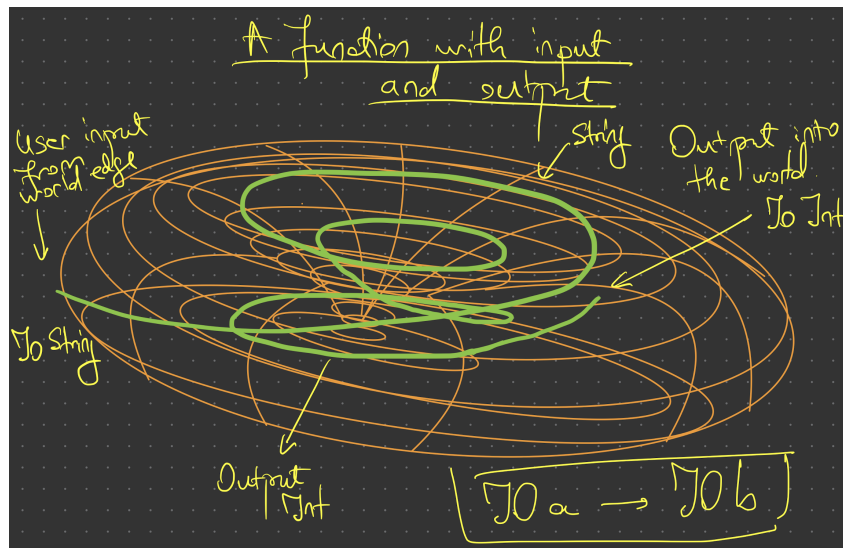 A function with input
and output
User input
from
world edge
String
Output into
the world
IO Int
IO String
Output
Int
IO a → IO b